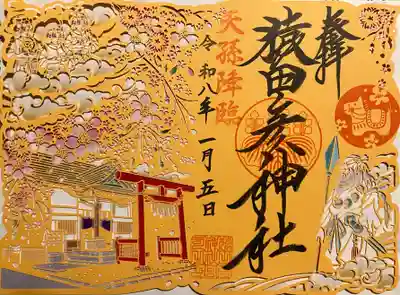 奉拝
猿田彦神社
天孫降臨
令和八年 一月五日